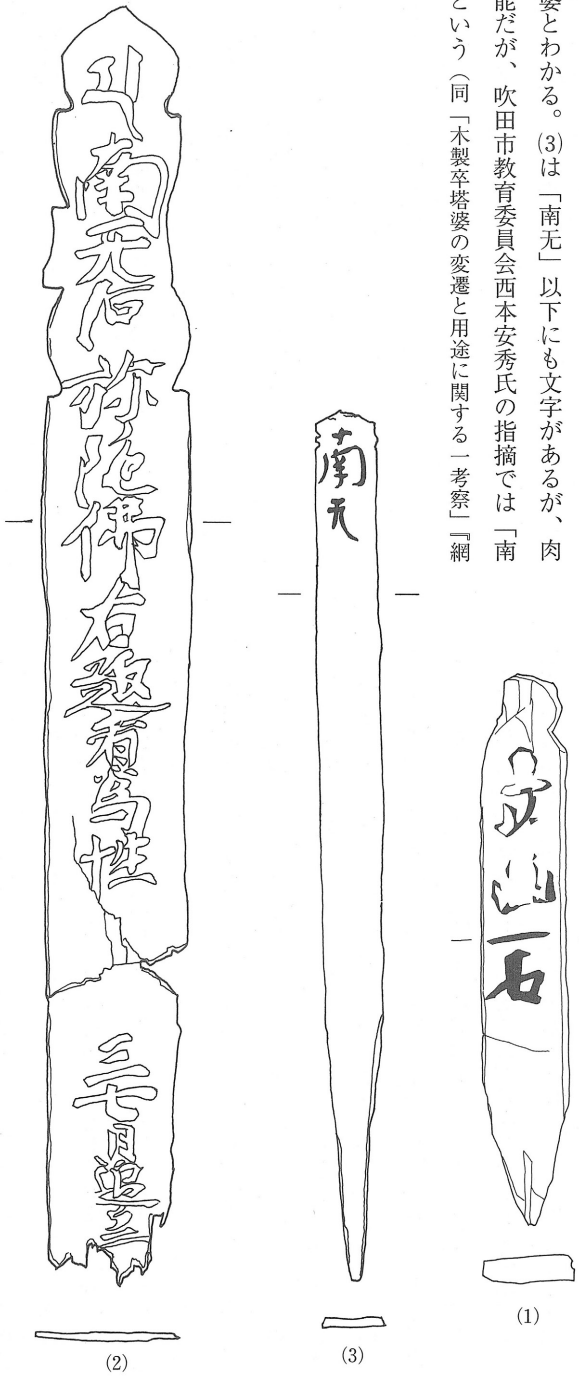 婆とわかる。(3)は「南无」以下にも文字があるが、肉
能だが、吹田市教育委員会西本安秀氏の指摘では「南
という（同「木製卒塔婆の変遷と用途に関する一考察」『網
一石
(1)
南无
(3)
南无阿弥陀佛右趣者為性
三七日追
(2)